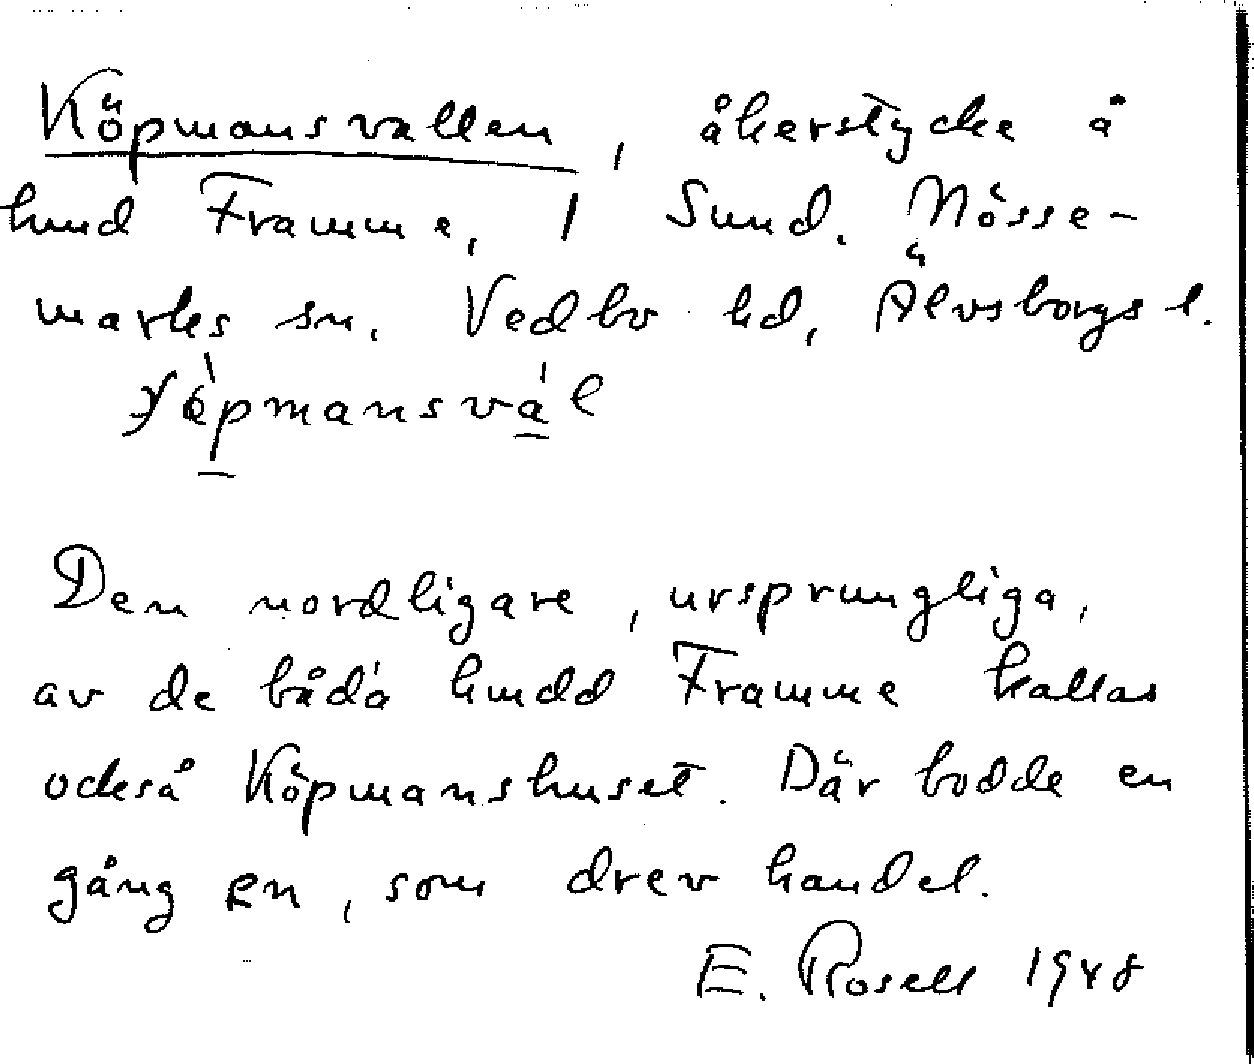 Köpmansvallen, åkerstycke å
hmd Framme, 1 Sund. Nösse-
marks sn. Vedbo hd, Älvsborgs l.
Den nordligare, ursprungliga,
av de båda hmdd Framme kallas
också Köpmanshuset. Där bodde en
gång en, som drev handel.
E. Rosell 1948